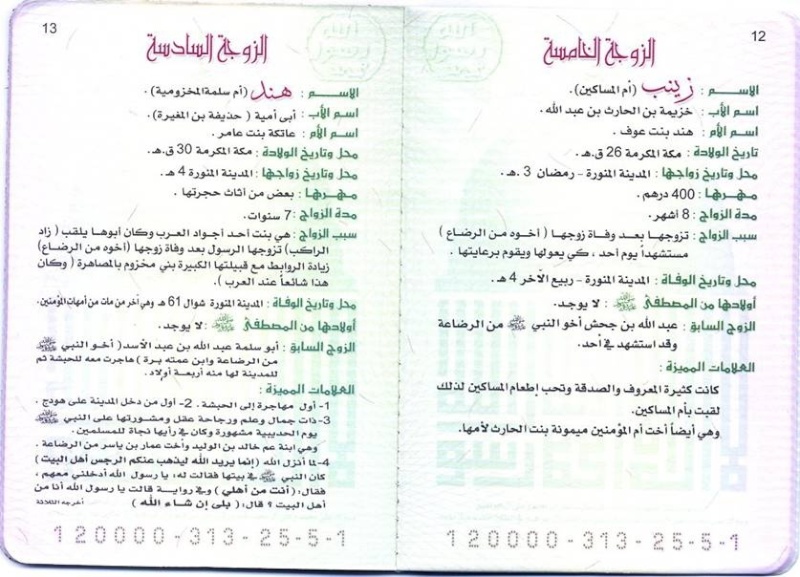 12
الزوجة الخامسة
الاســم : زينب (أم المساكين).
اسم الأب : خزيمة بن الحارث بن عبد الله.
اسم الأم : هند بنت عوف.
تاريخ الولادة : مكة المكرمة 26 ق.هـ.
محل وتاريخ زواجها : المدينة المنورة - رمضان 3 .هـ.
مـهـرهـا : 400 درهم.
مدة الزواج : 8 أشهر.
سبب الزواج : تزوجها بعد وفاة زوجها ( أخوه من الرضاع )
مستشهداً يوم أحد ، كي يعولها ويقوم برعايتها .
محل وتاريخ الوفاة : المدينة المنورة - ربيع الآخر 4 هـ.
أولادها من المصطفى ﷺ : لا يوجد.
الزوج السابق : عبد الله بن جحش أخو النبي ﷺ من الرضاعة
وقد استشهد في أحد.
العلامات المميزة :
كانت كثيرة المعروف والصدقة وتحب إطعام المساكين لذلك
لقبت بأم المساكين.
وهي أيضاً أخت أم المؤمنين ميمونة بنت الحارث لأمها.
120000-313-25-5-1
13
الزوجة السادسة
الاســم : هند (أم سلمة المخزومية) .
اسم الأب : أبى أمية ( حذيفة بن المغيرة).
اسم الأم : عاتكة بنت عامر .
محل وتاريخ الولادة : مكة المكرمة 30 ق.هـ.
محل وتاريخ زواجها : المدينة المنورة 4 هـ.
مـهـرهـا : بعض من أثاث حجرتها .
مدة الزواج : 7 سنوات.
سبب الزواج : هي بنت أحد أجواد العرب وكان أبوها يلقب ( زاد
الراكب) تزوجها الرسول بعد وفاة زوجها (أخوه من الرضاع)
زيادة الروابط مع قبيلتها الكبيرة بني مخزوم بالمصاهرة ( وكان
هذا شائعاً عند العرب ).
محل وتاريخ الوفاة : المدينة المنورة شوال 61 هـ وهي آخر من مات من أمهات المؤمنين.
أولادها من المصطفى ﷺ : لا يوجد.
الزوج السابق : أبو سلمة عبد الله بن عبد الأسد( أخو النبي ﷺ
من الرضاعة وابن عمته برة ) هاجرت معه للحبشة ثم
للمدينة لها منه أربعة أولاد.
العلامات المميزة :
1- أول مهاجرة إلى الحبشة . 2- أول من دخل المدينة على هودج .
3- ذات جمال وعلم ورجاحة عقل ومشورتها على النبي ﷺ
يوم الحديبية مشهورة وكان في رأيها نجاة للمسلمين .
وهي ابنة عم خالد بن الوليد وأخت عمار بن ياسر من الرضاعة .
4- لما أنزل الله (إنما يريد الله ليذهب عنكم الرجس أهل البيت )
كان النبي ﷺ في بيتها فقالت له: يا رسول الله أدخلني معهم ،
فقال: (أنت من أهلي ) وفي رواية قالت يا رسول الله أنا من
أهل البيت ؟ قال: ( بلى إن شاء الله )
120000-313-25-5-1